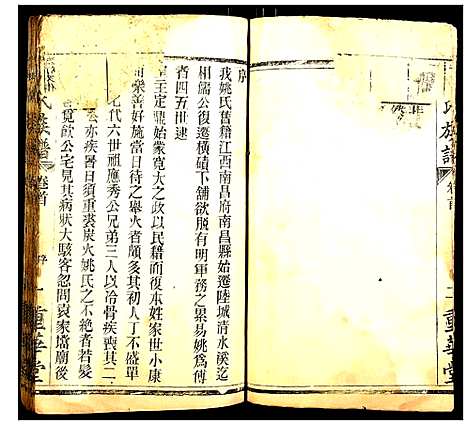 序
我姚氏舊籍江西南昌府南昌縣始遷陸城清水溪迄
相儒公復遷橫磧下舖欲脫有明軍務之累易姚為傅
者四五世逮
主定鼎始蒙寬大之政以民籍而復本姓家世小康
而樂善好施當日待之舉火者頗多其初人丁不盛單
七代六世祖應秀公兄弟三人以冷骨疾喪其二
亦疾醫日須重裘炭火姚氏之不絕者若髮
竟飲公宅見其病狀大駭客忽問袁家壋廟後
氏族譜
卷首
序
一
重華堂
氏族譜
卷首
二
重華堂